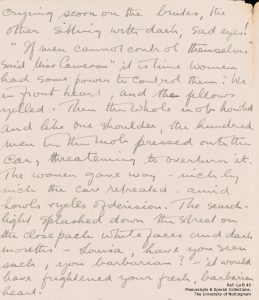 crying scorn on the brutes, the
other sitting with dark, sad eyes!
"If men cannot control themselves
said Miss Cameron "it is time women
had some power to control them: We
in front heard, and the fellows
yelled. Then the whole mob howled
and like one shoulder, the hundred
men in the mob pressed onto the
car, threatening to overturn it.
The women gave way - inch by
inch the car retreated amid
howls & yells of derision. The search-
light splashed down the street on
the close pack white faces and dark
mouths! - Louisa, have you seen
such, you barbarian? - it would
have frightened your fresh, barbarian
heart.
Ref: La B 49
Manuscripts & Special Collections,
The University of Nottingham